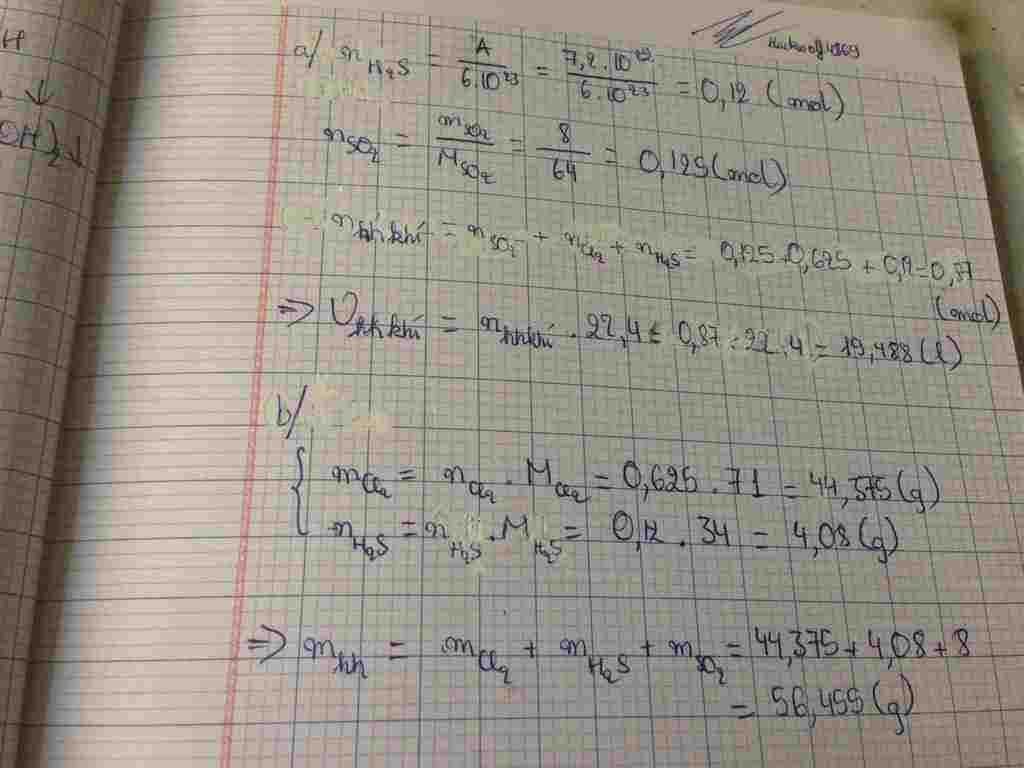 H
↓
OH)₂↓
a/ n_H₂S = A / 6.10²³ = 7,2.10²² / 6.10²³ = 0,12 (mol)
n_SO₂ = m_SO₂ / M_SO₂ = 8 / 64 = 0,125(mol)
n_hh khí = n_SO₂ + n_Cl₂ + n_H₂S = 0,125+0,625 + 0,12=0,77
(mol)
=> V_hh khí = n_hh khí . 22,4 = 0,87 . 22,4 = 19,488 (l)
b/
m_Cl₂ = n_Cl₂ . M_Cl₂ = 0,625 . 71 = 44,375(g)
m_H₂S = n_H₂S . M_H₂S = 0,12 . 34 = 4,08(g)
=> m_hh = m_Cl₂ + m_H₂S + m_SO₂ = 44,375 + 4,08 + 8
= 56,455 (g)